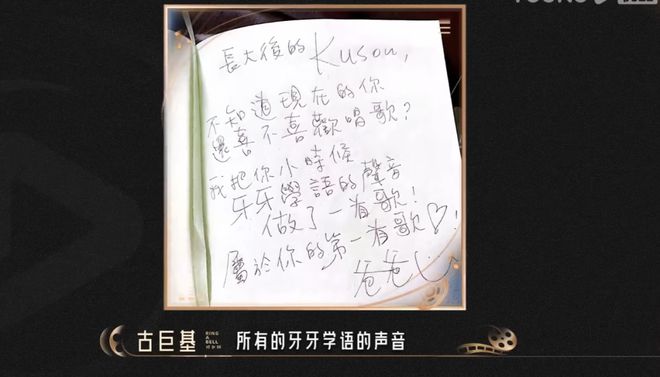 長大後的 Kuson,
不知道現在的你
還喜不喜歡唱歌?
我把你小時候
牙牙學語的聲音
做了一首歌!
屬於你的第一首歌♡!
爸爸
古巨基 RING A BELL 所有的牙牙学语的声音